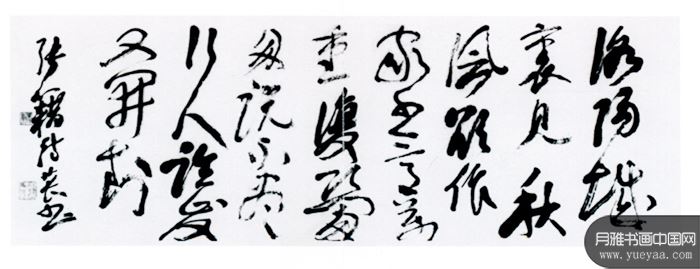 洛陽城
裏見秋
風欲作
家書意萬
重復恐
匆匆說不盡
行人臨發
又開封
張籍詩
月雅书画中国网
www.yueyaa.com